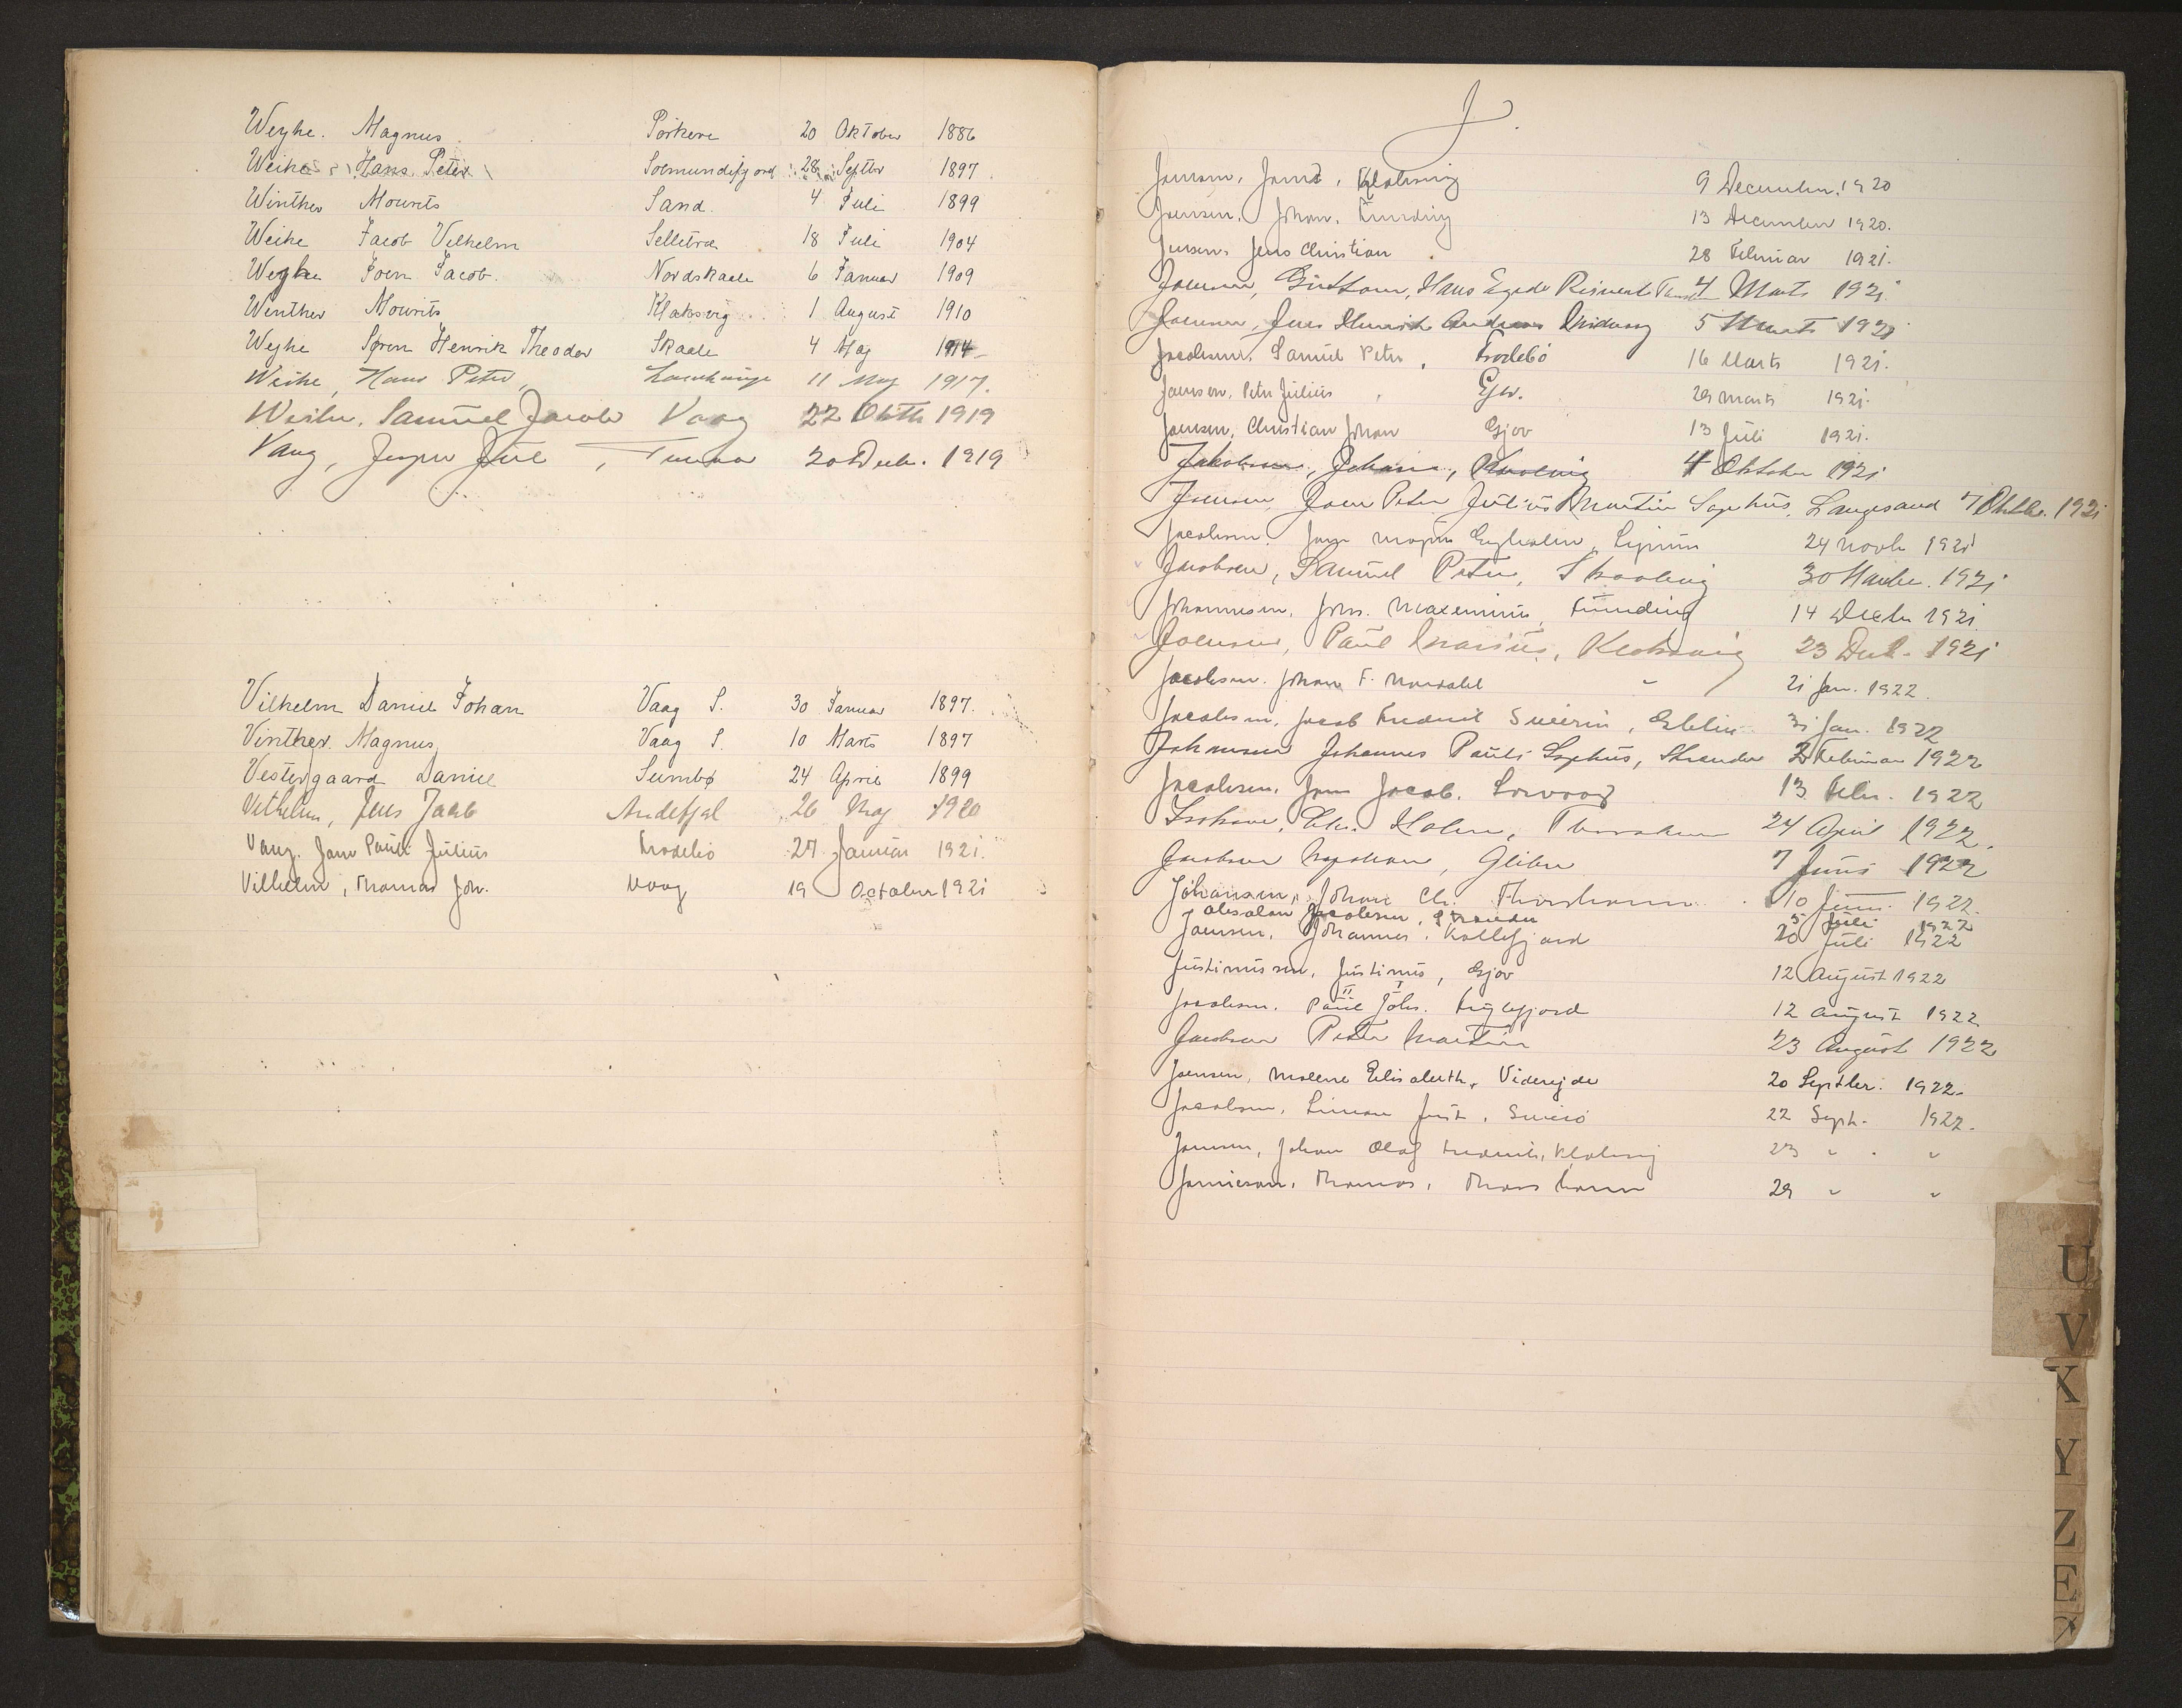 Weyhe. Magnus Porkere 20 Oktober 1886
Weihe Hans Peter 28 Septbr 1897
Winther Mourits Sand. 4 Juli 1899
Weihe Jacob Vilhelm Selletræ 18 Juli 1904
Weyhe Joen Jacob. Nordskaale 6 Januar 1909
Winther Mourits Klaksvig 1 August 1910
Weyhe Søren Henrik Theodor Skaale 4 Maj 1914
Weihe, Hans Peter, 11 Maj 1917.
Weihe, Samuel Jacob Vaag 22 Oktb 1919
Vang, Jesper Juul, 20 Decb. 1919
Vilhelm Daniel Johan Vaag S. 30 Januar 1897.
Vinther Magnus Vaag S. 10 Marts 1897
Vestergaard Daniel Sumbø 24 April 1899
Vilhelm, Jens Jacob Andefjel 26 Maj 1920
Vang. Jens Pauli Julius Frodebo 27 Januar 1921.
Vilhelm, Thomas Joh. Vaag 19 October 1921
J.
Joensen, Klaksvig 9 December 1920
Joensen, Johan. Funding 13 December 1920.
Jensen, Jens Christian 28 Februar 1921.
Joensen, Hans Egede 4 Marts 1921
Joensen, Jens Henrik Andreas 5 Marts 1921
Jacobsen, Samuel Peter, Frodebö 16 Marts 1921.
Joensen, Peter Julius, Gjov. 29 Marts 1921.
Joensen, Christian Johan Gjov 13 Juli 1921.
Jakobsen, 4 Oktober 1921
Joensen, Joen Peter Julius Martin Sophus, Langesand 7 Oktbr. 1921
Jacobsen. 24 Novb 1921
Jacobsen, Samuel Peter, Skaalevig 30 1921
Johannesen, Johs. Maximinus, Funding 14 Decbr 1921
Joensen, Paul Marius, Klaksvig 23 Decb. 1921
Jacobsen. Johan F. Nordahl " 21 Jan. 1922.
Jacobsen, Jacob Frederik Severin, Glibre 31 Jan. 1922
Johannes Pauli Sophus, Strender 2 Februar 1922
Jacobsen, Jens Jacob. Lorvig 13 Febr. 1922
Chr. Holm, Thorshavn 24 April 1922.
Jacobsen Napoleon, Glibre 7 Juni 1922
Johansen, Johan Chr. Thorshavn 10 Juni 1922.
Absalon Jacobsen, Strender 5 Juli 1922
Joensen, Johannes, Kollefjord 20 Juli 1922
Justinussen, Justinus, Gjov 12 August 1922
Jacobsen. Paul Johs. Fuglefjord 12 August 1922
Jacobsen Peter Martin 23 August 1922
Joensen, Malene Elisabeth, Viderejde 20 Septbr. 1922.
Jacobsen, Simon Just, Svinö 22 Sept. 1922.
Joensen, Johan Olaf Frederik, Klaksvig 23 " "
Jamieson, Thomas, Thorshavn 29 " "
U
V
X
Y
Z
Æ
Ø